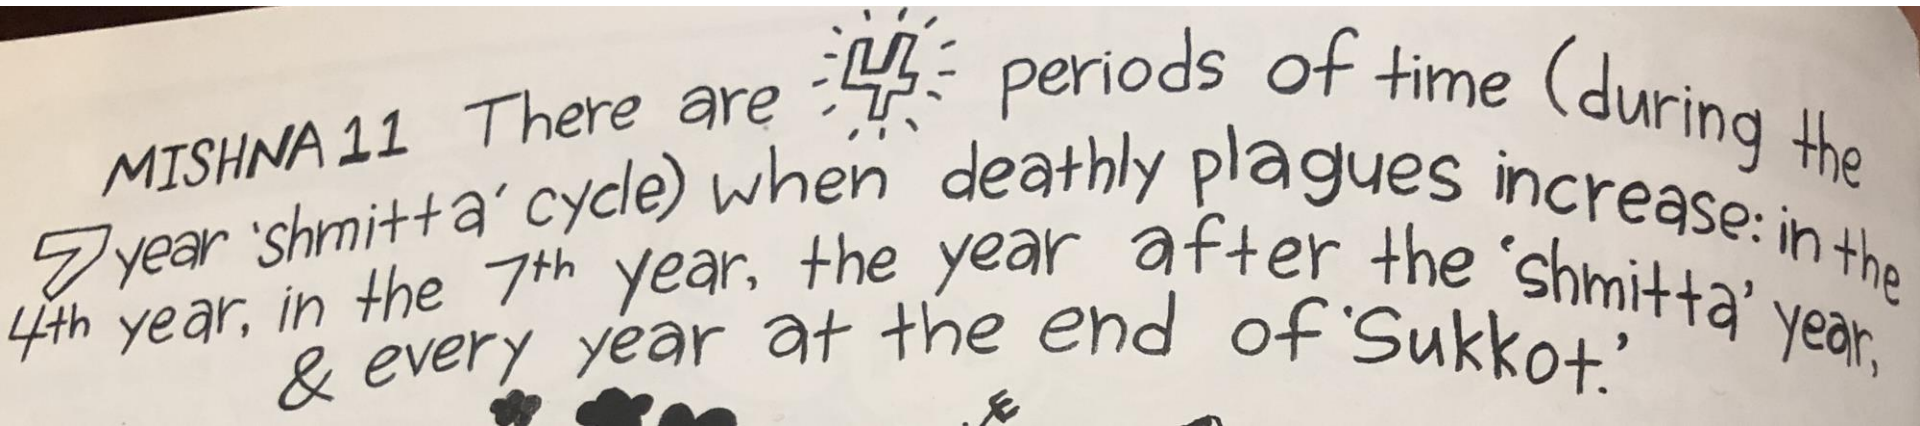 MISHNA 11 There are 4 periods of time (during the
7 year 'shmitta' cycle) when deathly plagues increase: in the
4th year, in the 7th year, the year after the 'shmitta' year,
& every year at the end of 'Sukkot.'